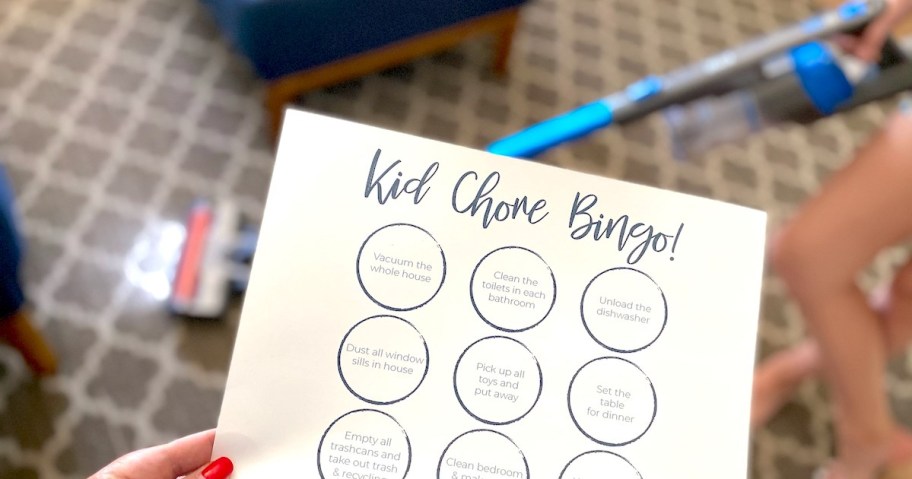 Kid Chore Bingo!
Vacuum the
whole house
Clean the
toilets in each
bathroom
Unload the
dishwasher
Dust all window
sills in house
Pick up all
toys and
put away
Set the
table
for dinner
Empty all
trashcans and
take out trash
& recycling
Clean bedroom